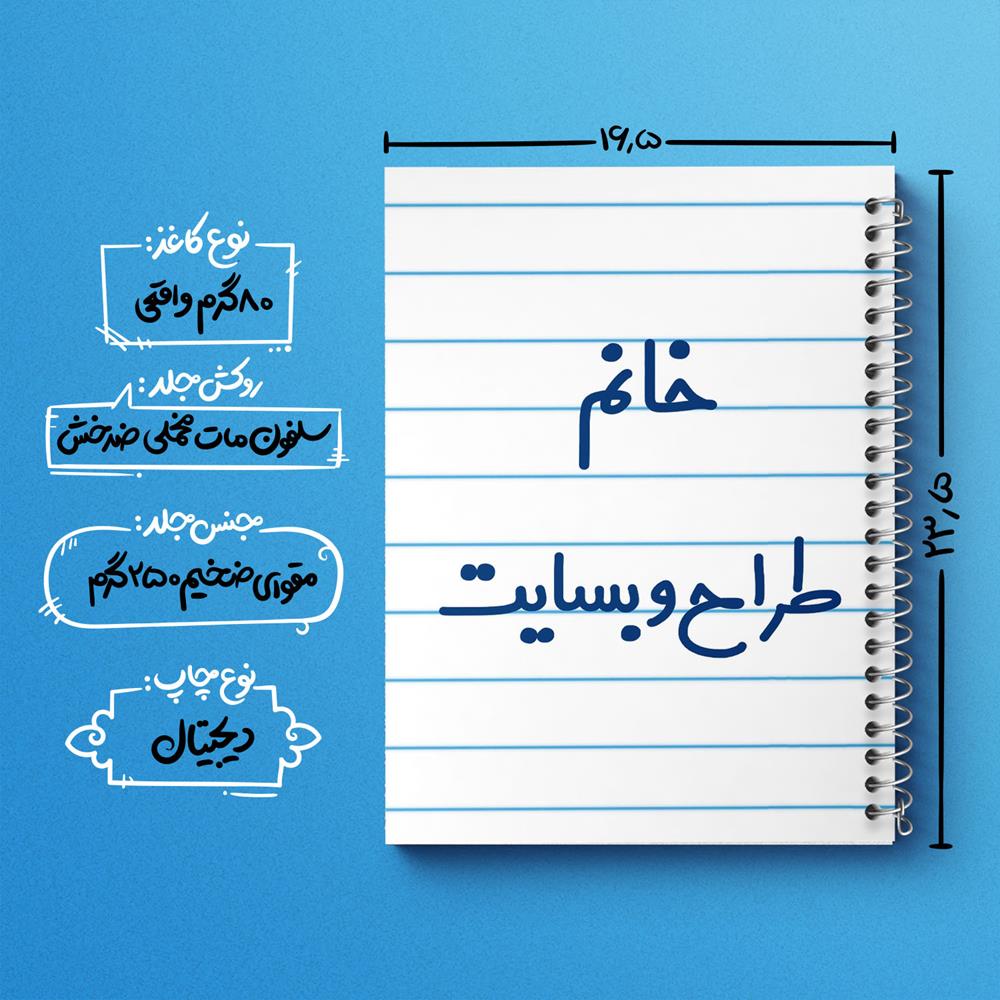 ۱۶,۵
۲۳,۵
خانم
طراح وبسایت
نوع کاغذ:
۸۰ گرم واقعی
روکش جلد:
سلفون مات مخملی ضدخش
جنس جلد:
مقوای ضخیم ۲۵۰ گرم
نوع چاپ:
دیجیتال